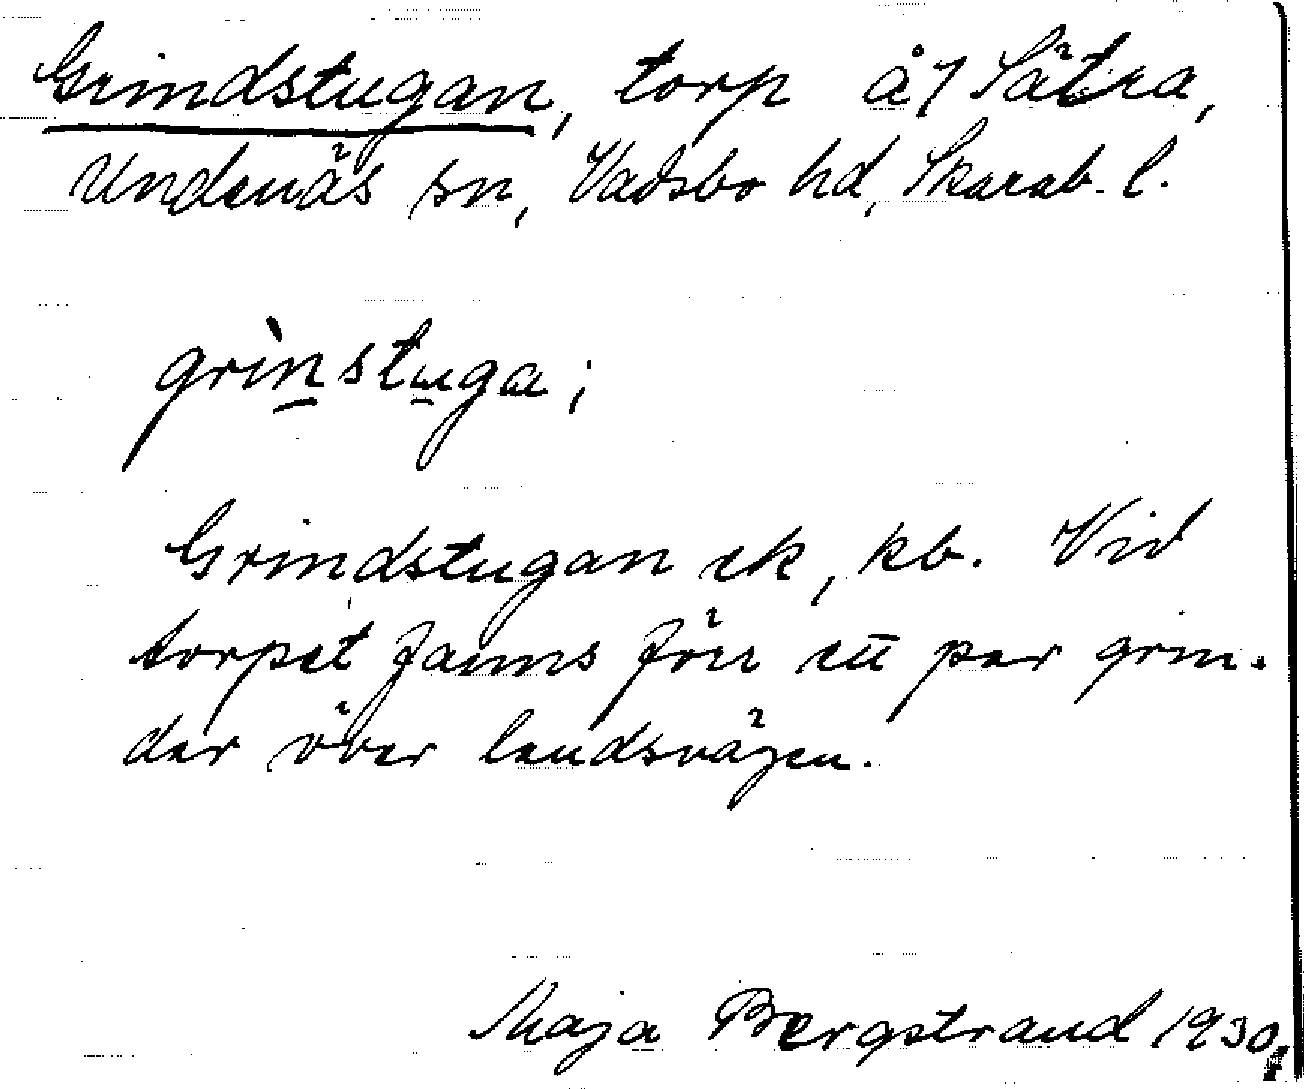 Grindstugan, torp å/ Sätra,
Undenäs sn, Vadsbo hd, Skarab. l.
grìnstuga;
Grindstugan ek, kb. Vid
torpet fanns förr ett par grin-
dar över landsvägen.
Maja Bergstrand 1930.